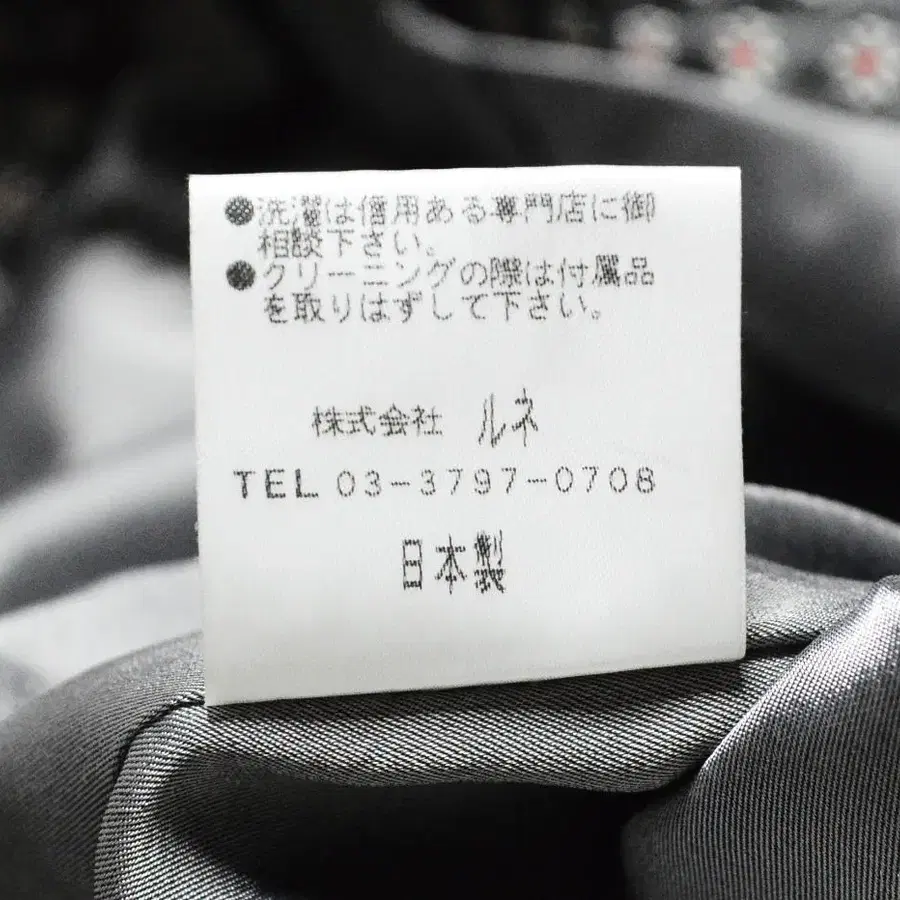 ●洗濯は信用ある専門店に御
相談下さい。
●クリーニングの際は付属品
を取りはずして下さい。
株式会社 ルネ
TEL 03-3797-0708
日本製